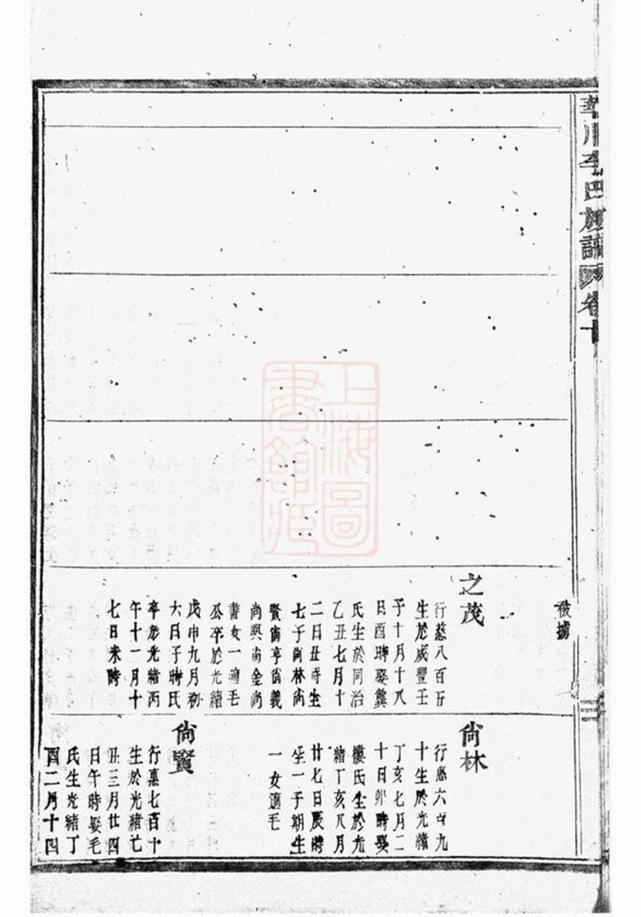 李氏族譜 卷十
被擄
之茂
行慈八百
生於咸豐壬
子十月十八
日酉時娶龔
氏生於同治
乙丑七月十
二日丑時生
七子尚林尚
賢尚亨尚義
尚興尚金尚
書女一適毛
公卒於光緒
戊申九月初
六日子時氏
卒於光緒丙
午十一月十
七日未時
尚林
行惠六百九
十生於光緒
丁亥七月二
十日卯時娶
樓氏生於光
緒丁亥八月
廿七日辰時
生一子期生
一女適毛
尚賢
行惠七百十
生於光緒
丑三月廿四
日午時娶毛
氏生光緒丁
酉二月十四
上海圖
書館藏